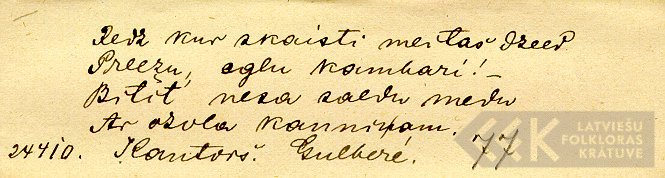 Redz kur skaisti meitas dzeed
Preežu, eglu kambarî! –
Bitit' nesa saldu medu
Ar ozola kanniņam.
24410. Kantors. Gulberé. 77
LATVIEŠU
FOLKLORAS
KRĀTUVE